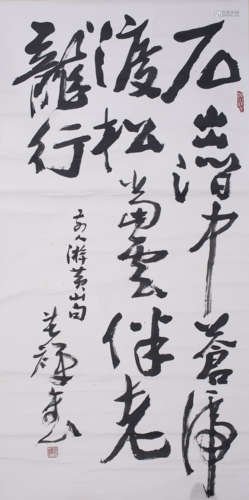 石出中蒼虎
渡松當雲伴老
龍行
人游黄山句